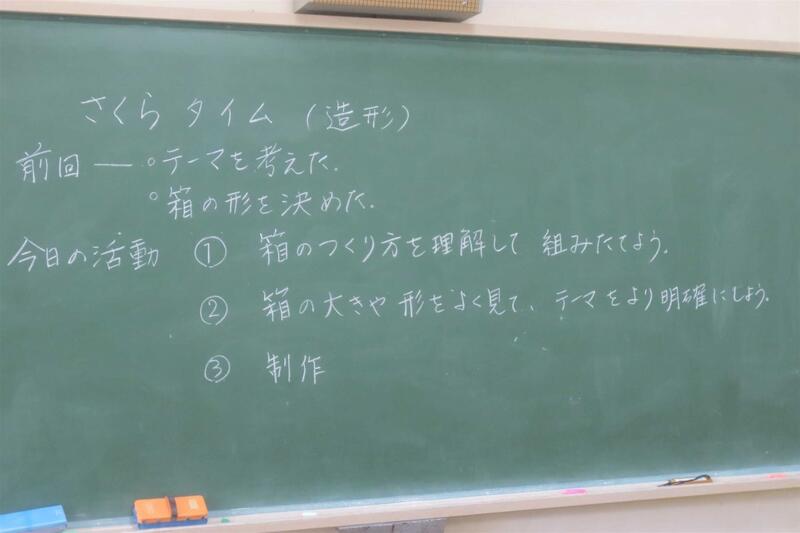 さくら タイム (造形)
前回 ― ○テーマを考えた.
○箱の形を決めた.
今日の活動 ① 箱のつくり方を理解して 組みたてよう.
② 箱の大きや 形をよく見て、テーマをより明確にしよう.
③ 制作